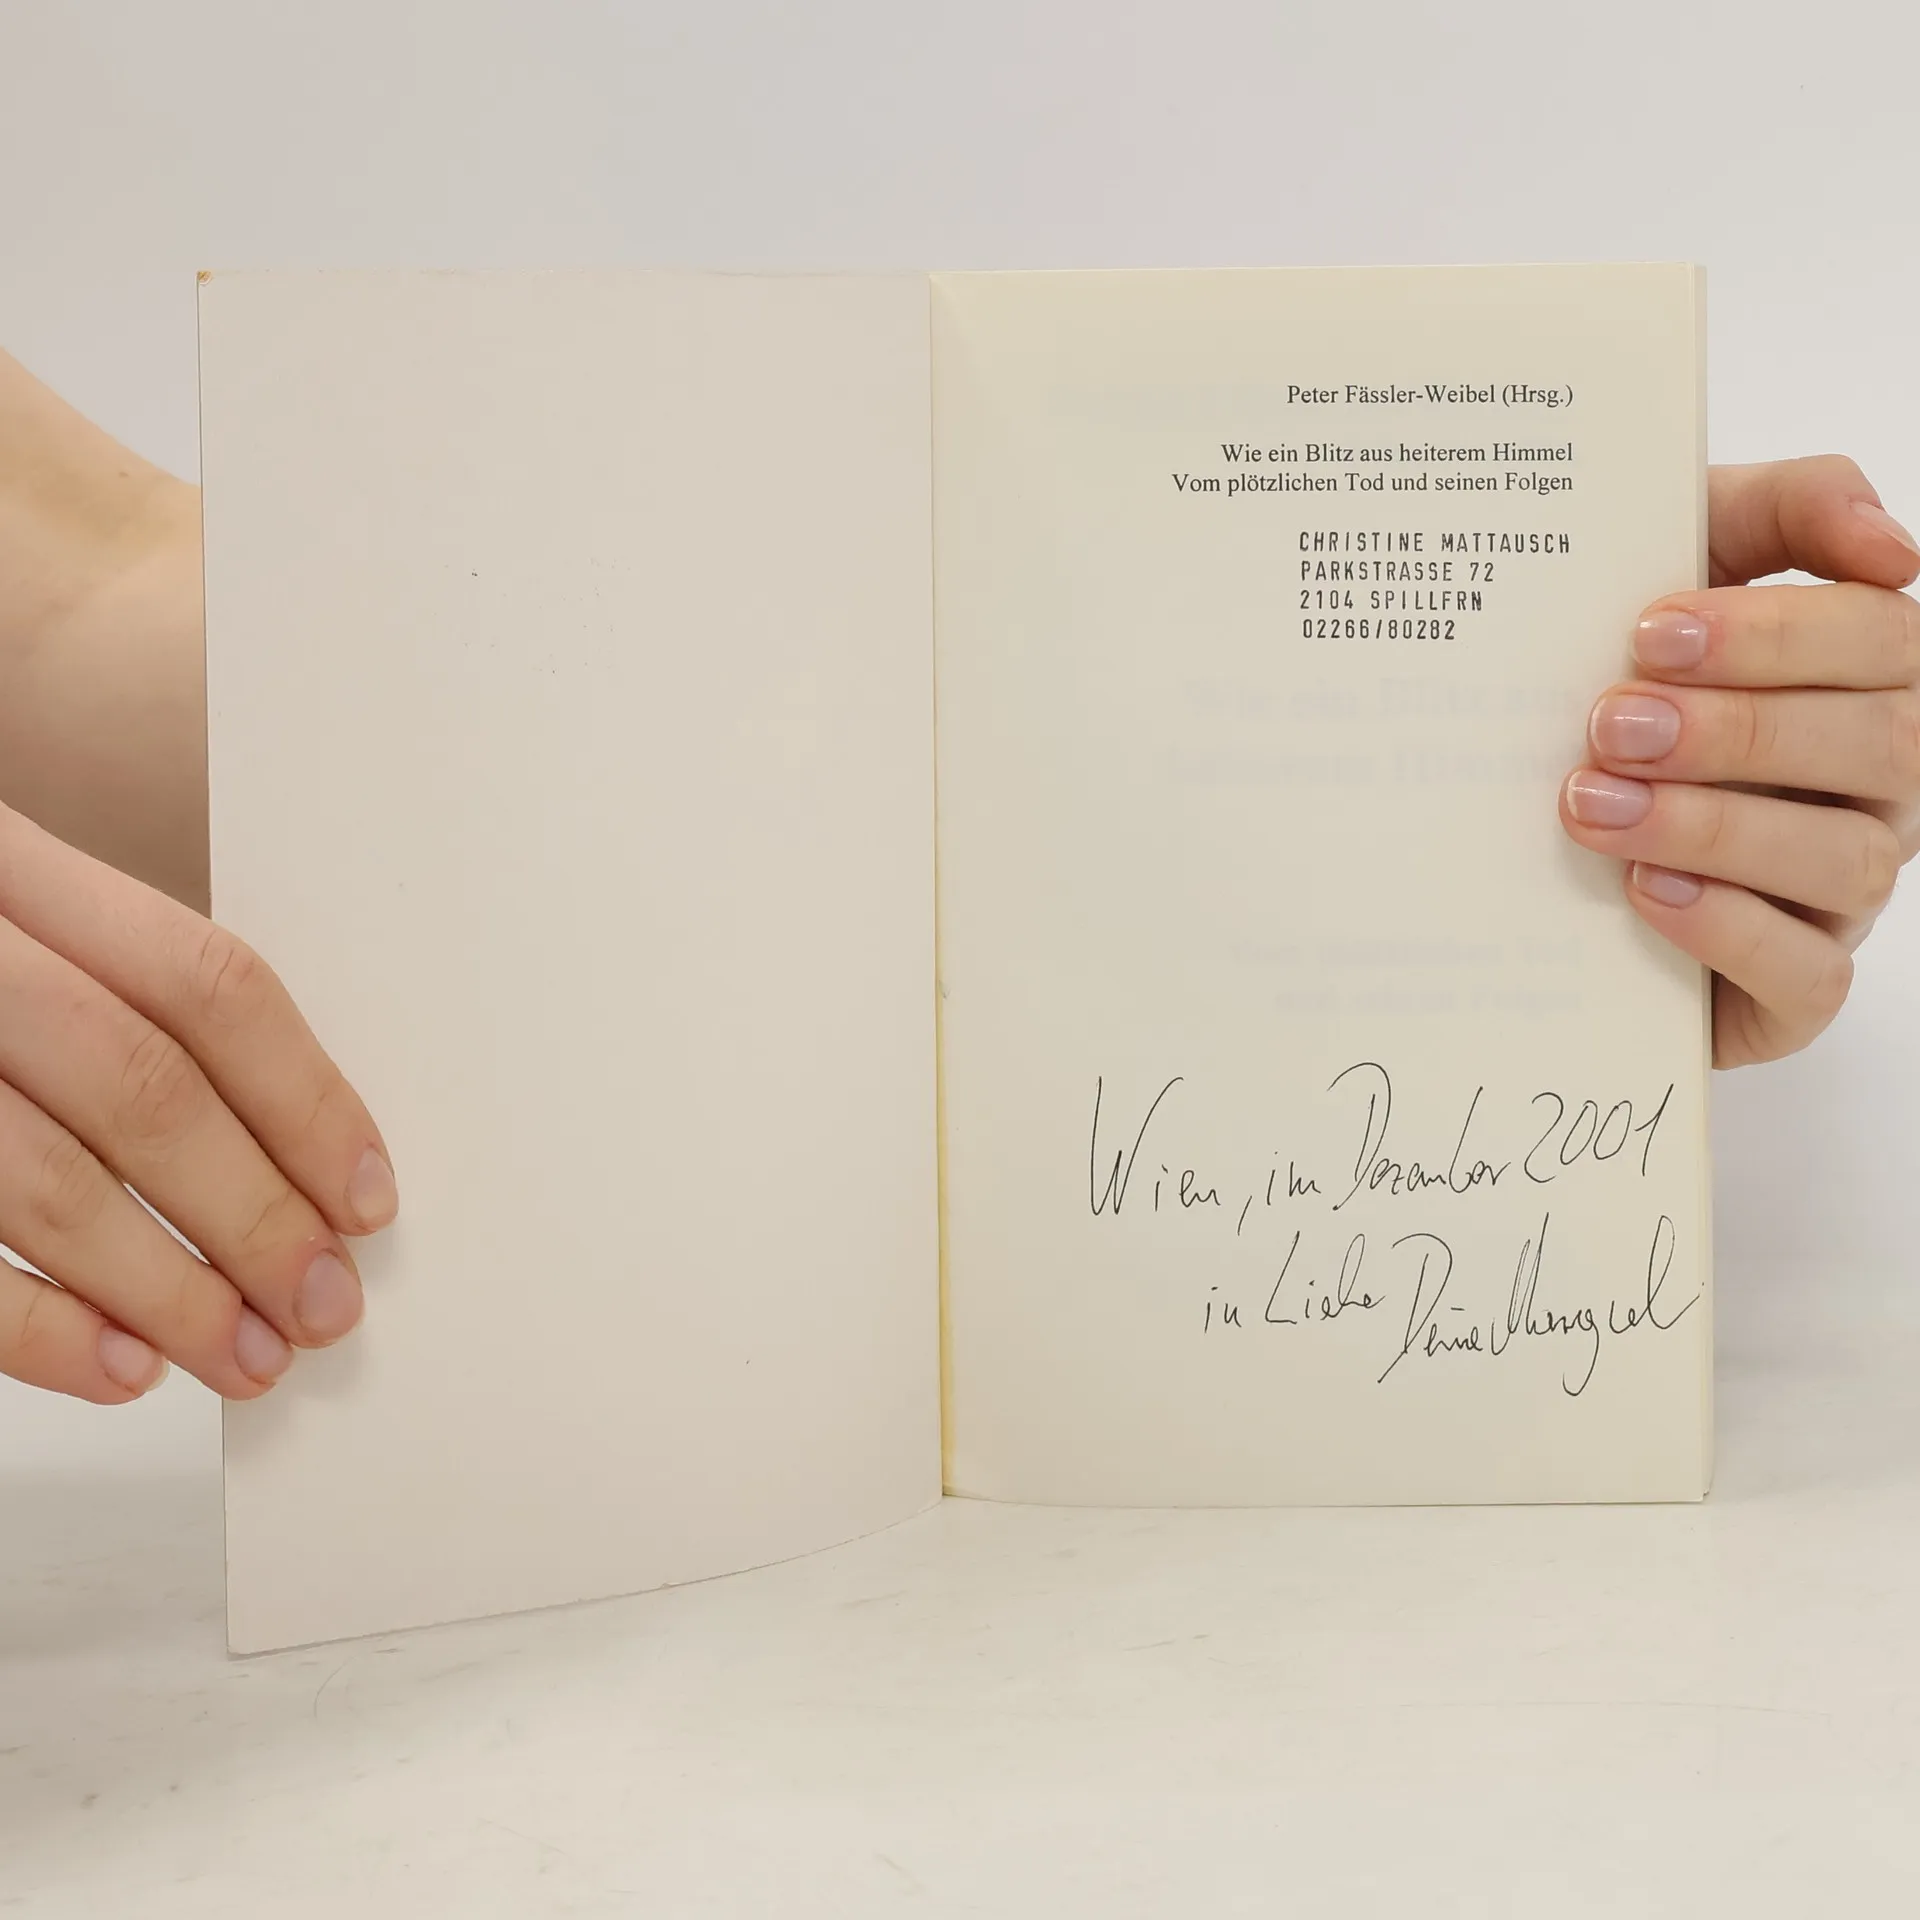 Peter Fässler-Weibel (Hrsg.)
Wie ein Blitz aus heiterem Himmel
Vom plötzlichen Tod und seinen Folgen
CHRISTINE MATTAUSCH
PARKSTRASSE 72
2104 SPILLFRN
02266/80282
Wien, im Dezember 2001
in Liebe Deine